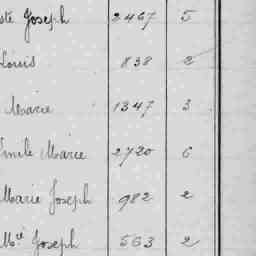 ste Joseph 2467 5
Louis 838 2
Marie 1347 3
Emile Marie 2720 6
Marie Joseph 982 2
Mie Joseph 563 2